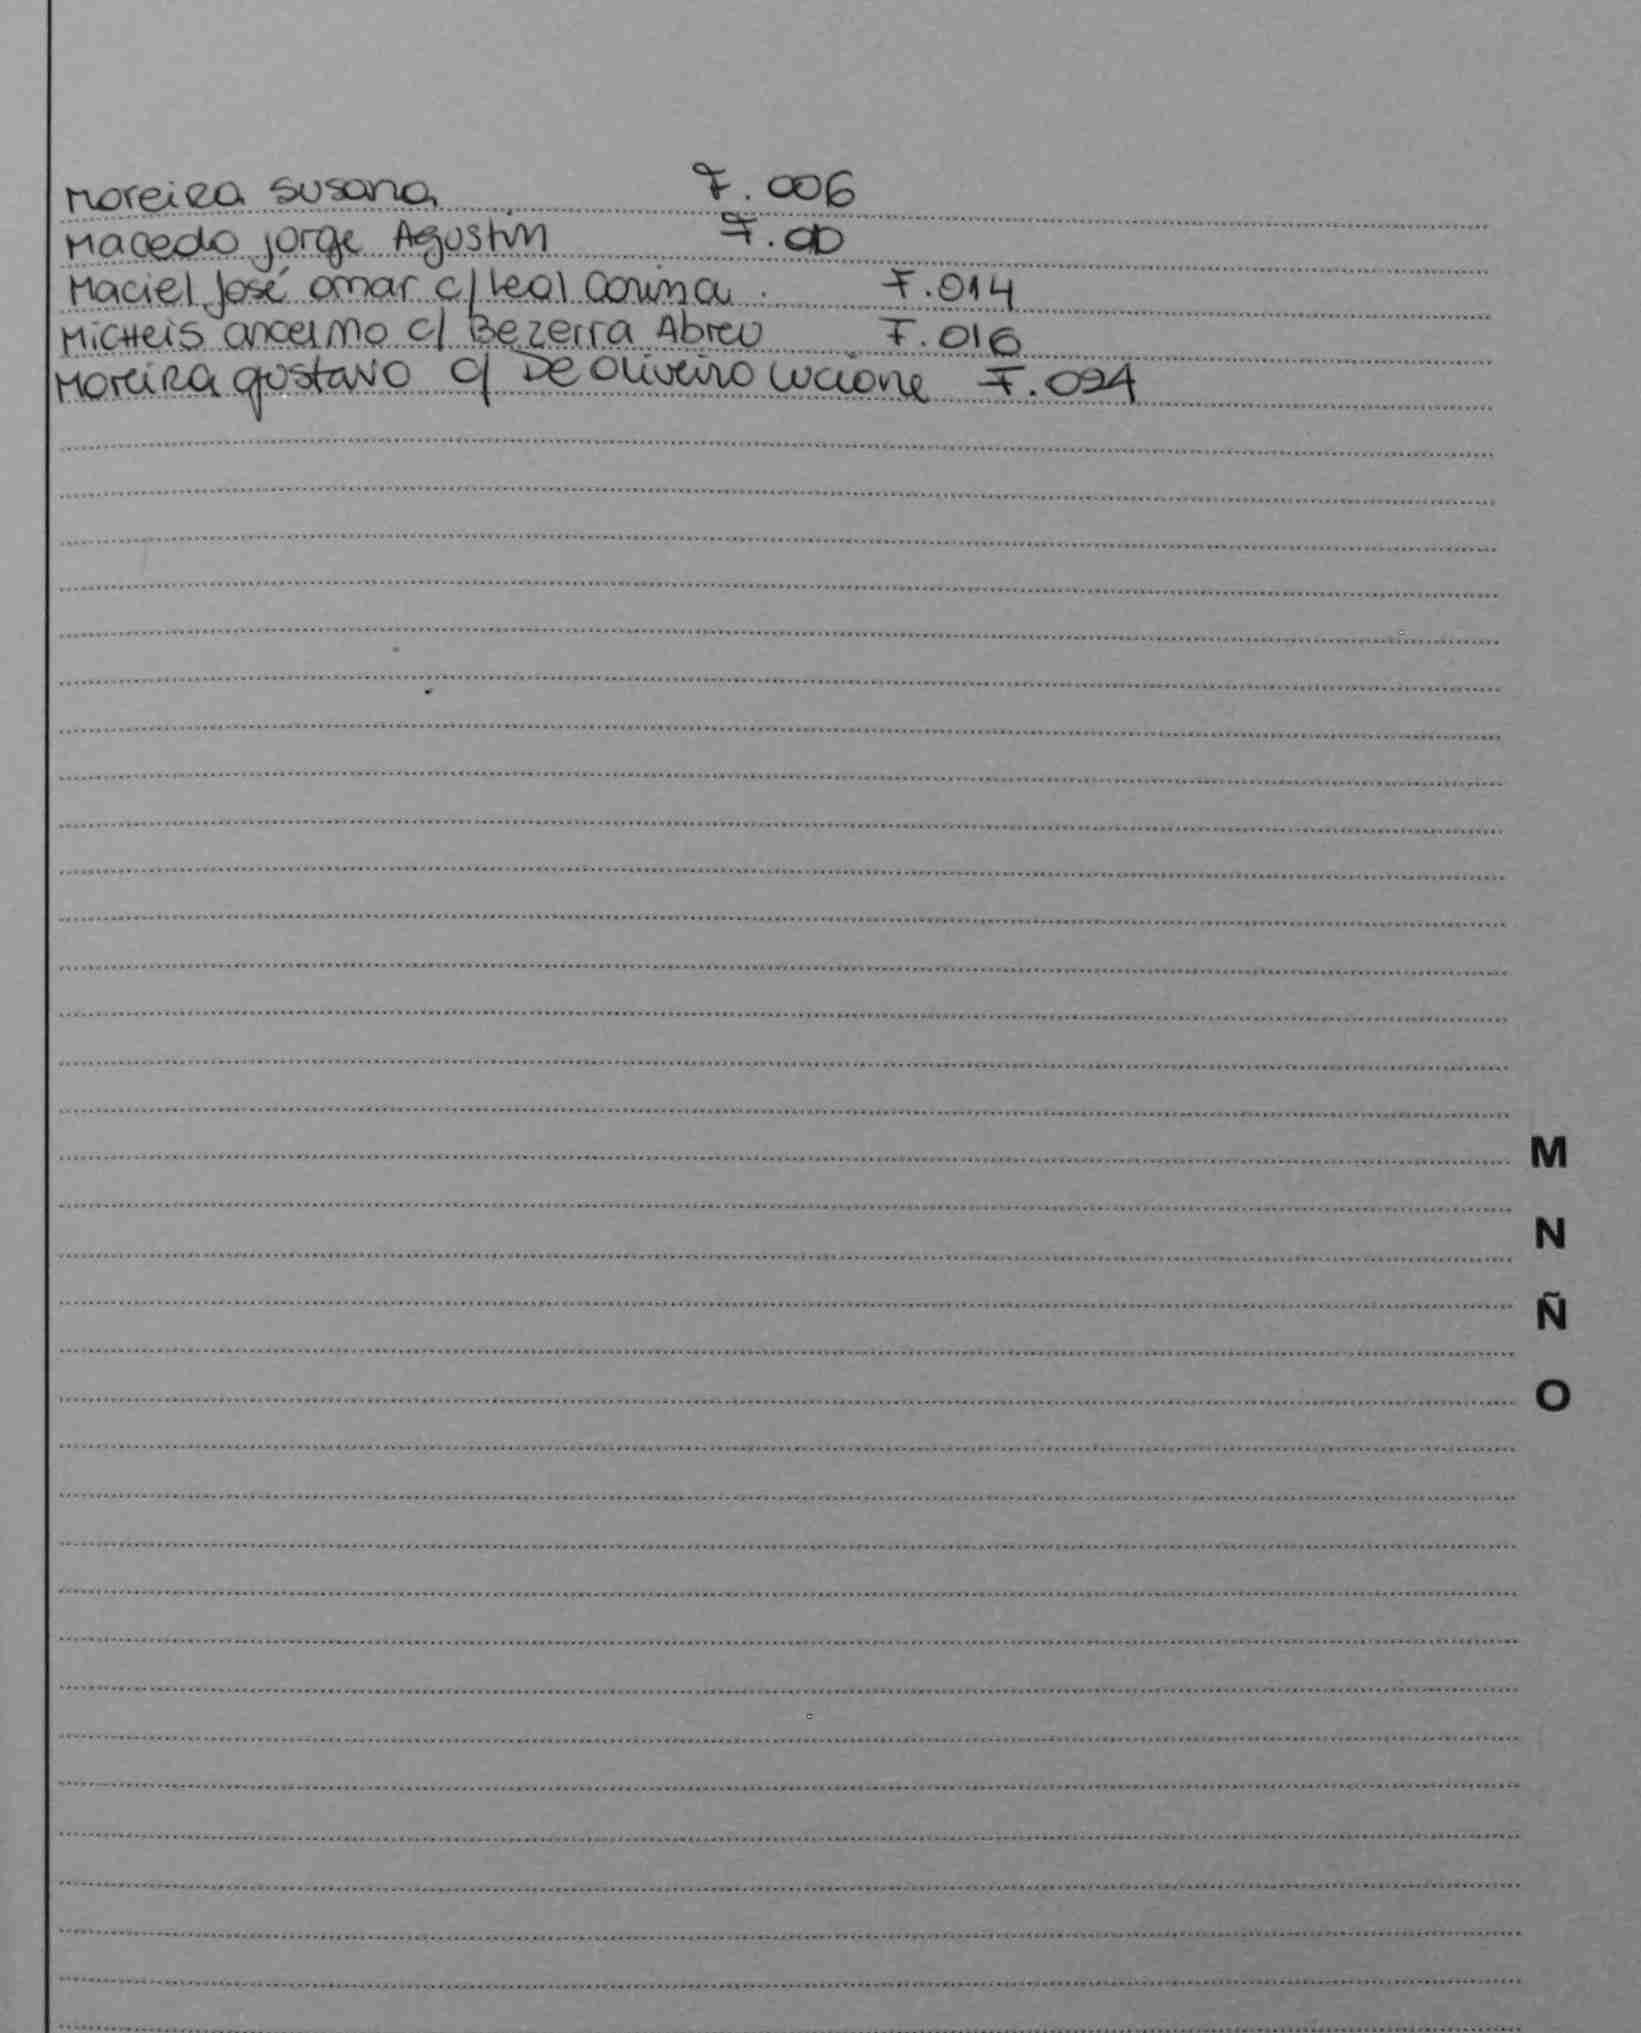 Moreira Susana F. 006
Macedo Jorge Agustín F.
Maciel José omar c/ Leal Corina . F. 014
Micheis ancelmo c/ Bezerra Abreu F. 016
Moreira gustavo c/ De Oliveira Luciane F. 024
M
N
Ñ
O